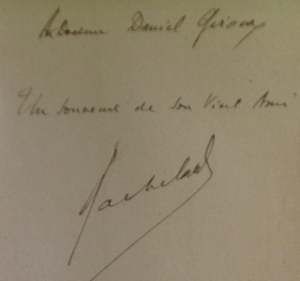 Au Docteur Daniel Giroux
Un souvenir de son vieil Ami
Bachelard